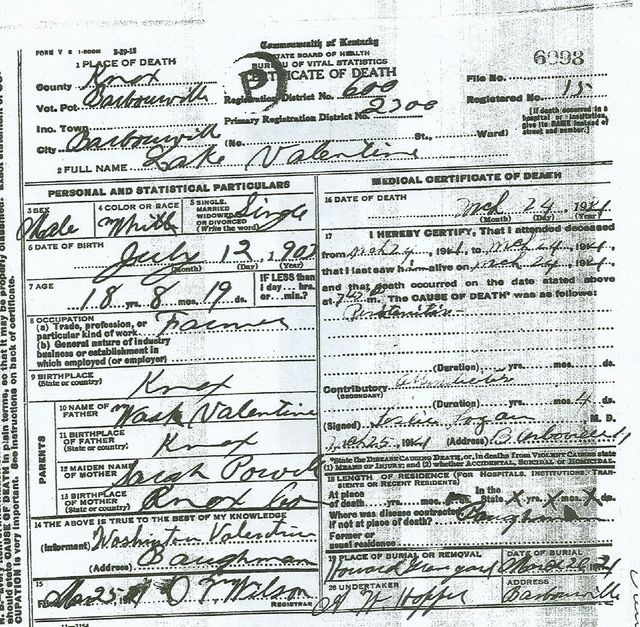 FORM V S 1-500M 2-29-18
Commonwealth of Kentucky
STATE BOARD OF HEALTH
BUREAU OF VITAL STATISTICS
CERTIFICATE OF DEATH
6098
1 PLACE OF DEATH
County Knox
Vot. Pct. Barbourville
Inc. Town
City Barbourville (No. St., Ward)
Registration District No. 600
Primary Registration District No. 2300
File No.
Registered No. 15
[If death occurred in a hospital or institution, give its NAME instead of street and number.]
2 FULL NAME Lake Valentine
PERSONAL AND STATISTICAL PARTICULARS
3 SEX Male
4 COLOR OR RACE White
5 SINGLE, MARRIED WIDOWED OR DIVORCED (Write the word) Single
6 DATE OF BIRTH July 12, 1902
(Month) (Day) (Year)
7 AGE 18 yrs. 8 mos. 19 ds.
IF LESS than 1 day... hrs. or... min.?
8 OCCUPATION
(a) Trade, profession, or particular kind of work Farmer
(b) General nature of industry business or establishment in which employed (or employer)
9 BIRTHPLACE (State or country) Knox
PARENTS
10 NAME OF FATHER Wash Valentine
11 BIRTHPLACE OF FATHER (State or country) Knox
12 MAIDEN NAME OF MOTHER
13 BIRTHPLACE OF MOTHER (State or country) Knox Co
14 THE ABOVE IS TRUE TO THE BEST OF MY KNOWLEDGE
(Informant) Washington Valentine
(Address) Baughman
15 Filed Mar 25 O F Wilson
REGISTRAR
MEDICAL CERTIFICATE OF DEATH
16 DATE OF DEATH Mch 24, 1921
(Month) (Day) (Year)
17 I HEREBY CERTIFY, That I attended deceased
from Mch 24, 1921, to Mch 24, 1921,
that I last saw him alive on Mch 24, 1921,
and that death occurred on the date stated above
at m. The CAUSE OF DEATH* was as follows:
Peritonitis
(Duration) yrs. mos. ds.
Contributory (SECONDARY)
(Duration) yrs. mos. 4 ds.
(Signed) Logan M. D.
1921 (Address) Barbourville Ky
*State the DISEASE CAUSING DEATH, or, in deaths from VIOLENT CAUSES state (1) MEANS OF INJURY; and (2) whether ACCIDENTAL, SUICIDAL OR HOMICIDAL.
18 LENGTH OF RESIDENCE (FOR HOSPITALS, INSTITUTIONS, TRANSIENTS OR RECENT RESIDENTS)
At place of death yrs. mos. ds. In the State X yrs. X mos. X ds.
Where was disease contracted if not at place of death? Baughman
Former or usual residence
19 PLACE OF BURIAL OR REMOVAL
DATE OF BURIAL March 26, 1921
20 UNDERTAKER W Hopper
ADDRESS Barbourville